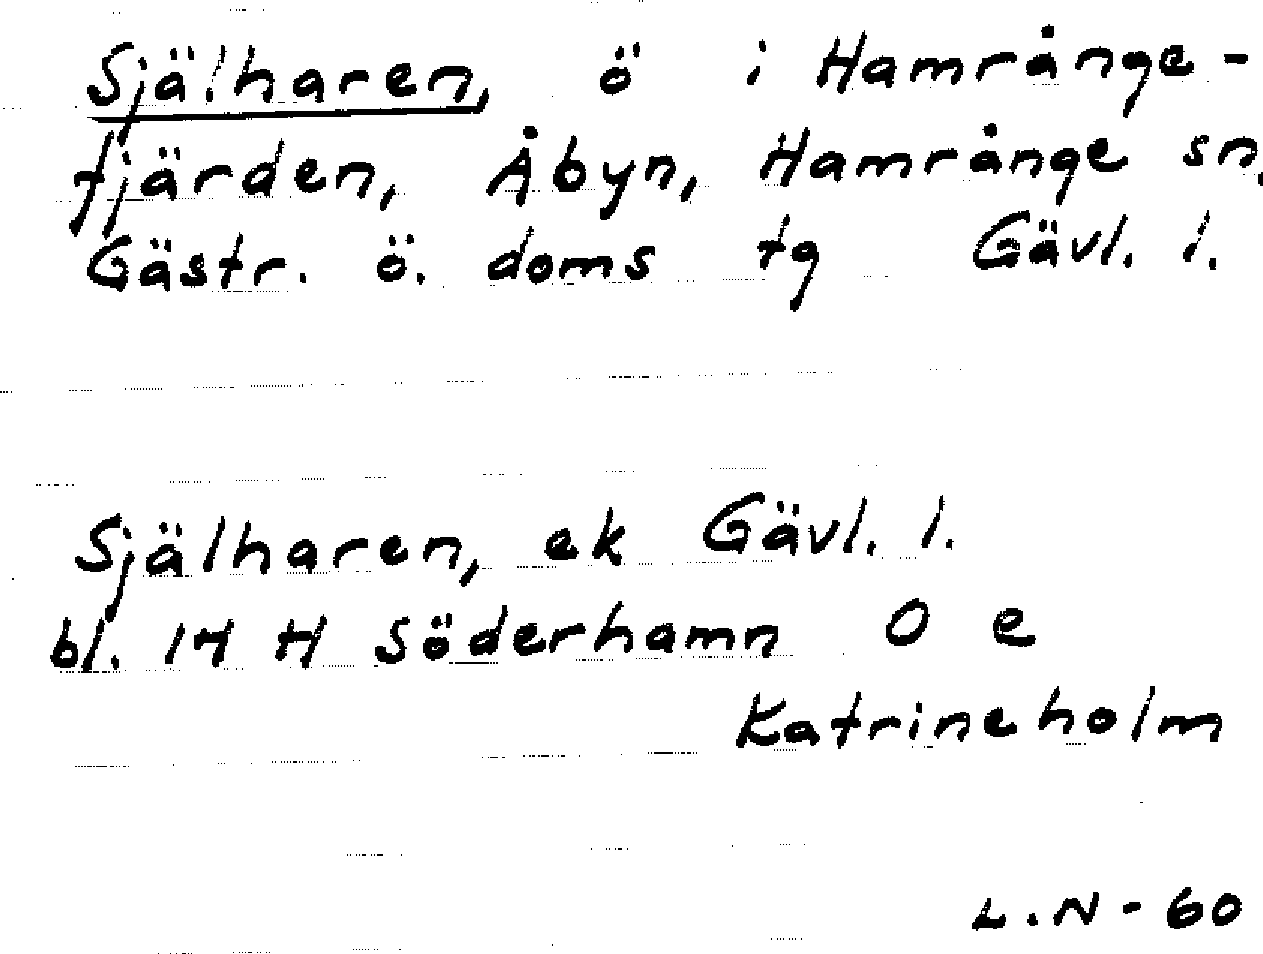 Själharen, ö i Hamrånge-
fjärden, Åbyn, Hamrånge sn,
Gästr. ö. doms tg Gävl. l.
Själharen, ek Gävl. l.
bl. 14 H Söderhamn O e
Katrineholm
L.N-60